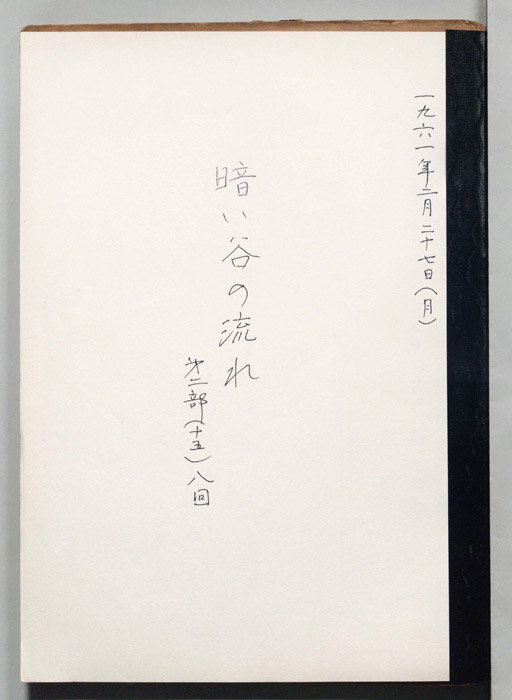 一九六一年二月二十七日(月)
暗い谷の流れ
第二部(十五)八回